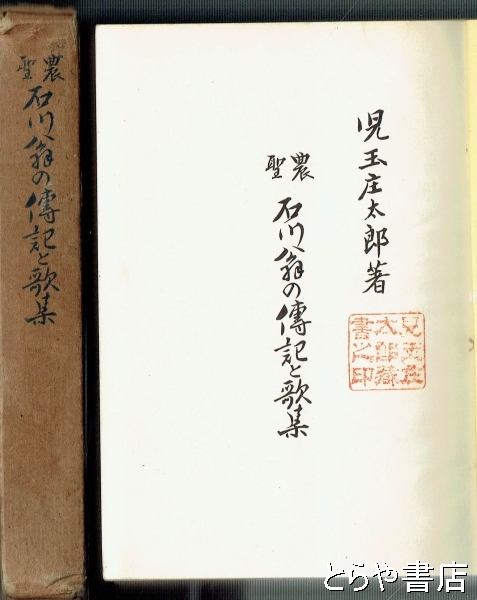 農聖 石川翁の傳記と歌集
児玉庄太郎著
農聖 石川翁の傳記と歌集
児玉庄
太郎蔵
書之印
とらや書店